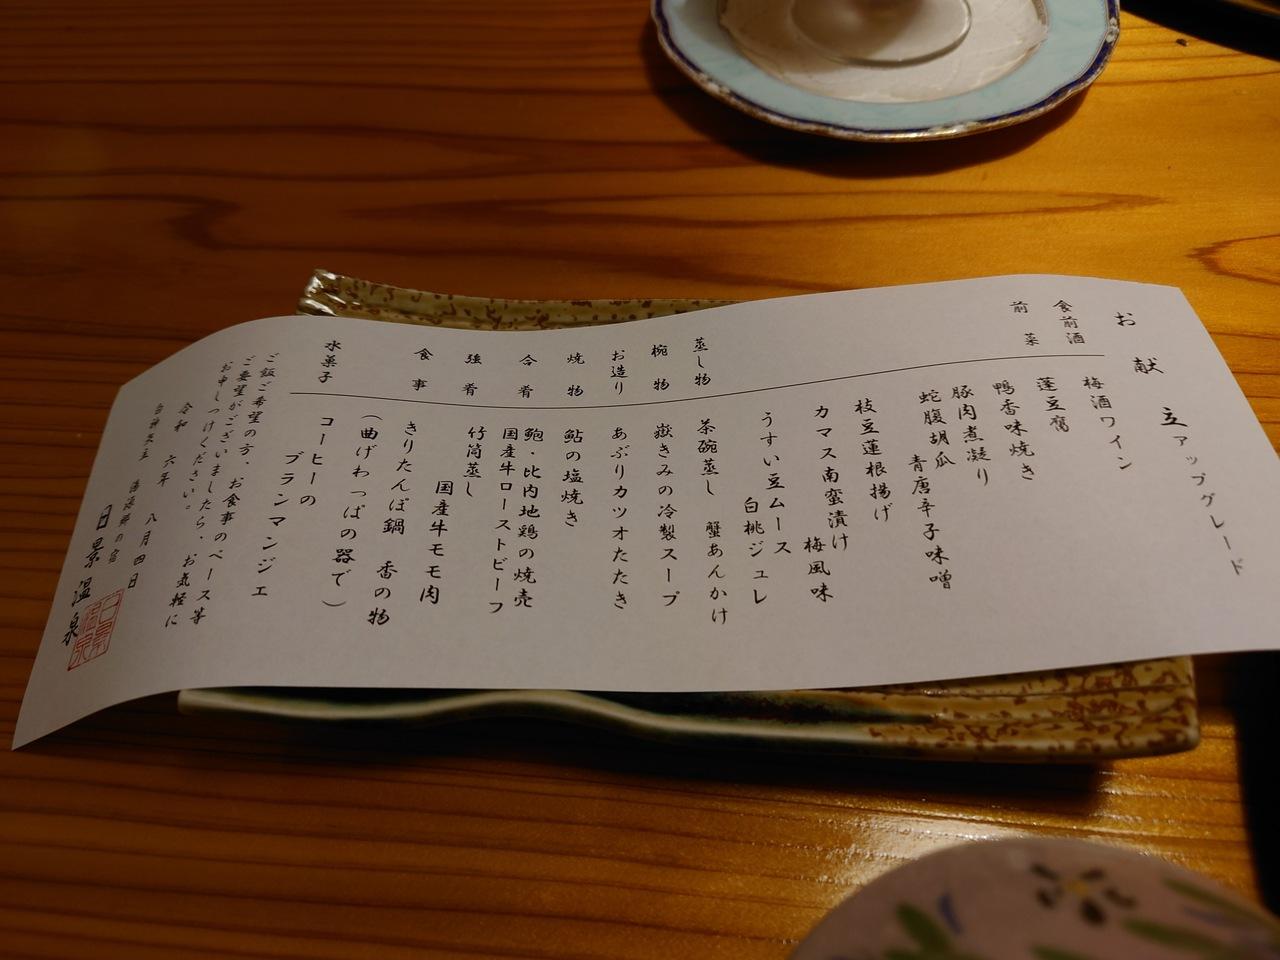 お献立アップグレード
食前酒 梅酒ワイン
前菜 蓬豆腐
鴨香味焼き
豚肉煮凝り
蛇腹胡瓜 青唐辛子味噌
枝豆蓮根揚げ
カマス南蛮漬け 梅風味
うすい豆ムース
白桃ジュレ
蒸し物 茶碗蒸し 蟹あんかけ
椀物 嶽きみの冷製スープ
お造り あぶりカツオたたき
焼物 鮎の塩焼き
合肴 鮑・比内地鶏の焼売
国産牛ローストビーフ
強肴 竹筒蒸し
国産牛モモ肉
食事 きりたんぽ鍋 香の物
(曲げわっぱの器で)
水菓子 コーヒーの
ブランマンジェ
ご飯ご希望の方、お食事のペース等
ご要望がございましたら、お気軽に
お申しつけください。
令和 六年 八月四日
湯の宿
日景温泉
日景温泉